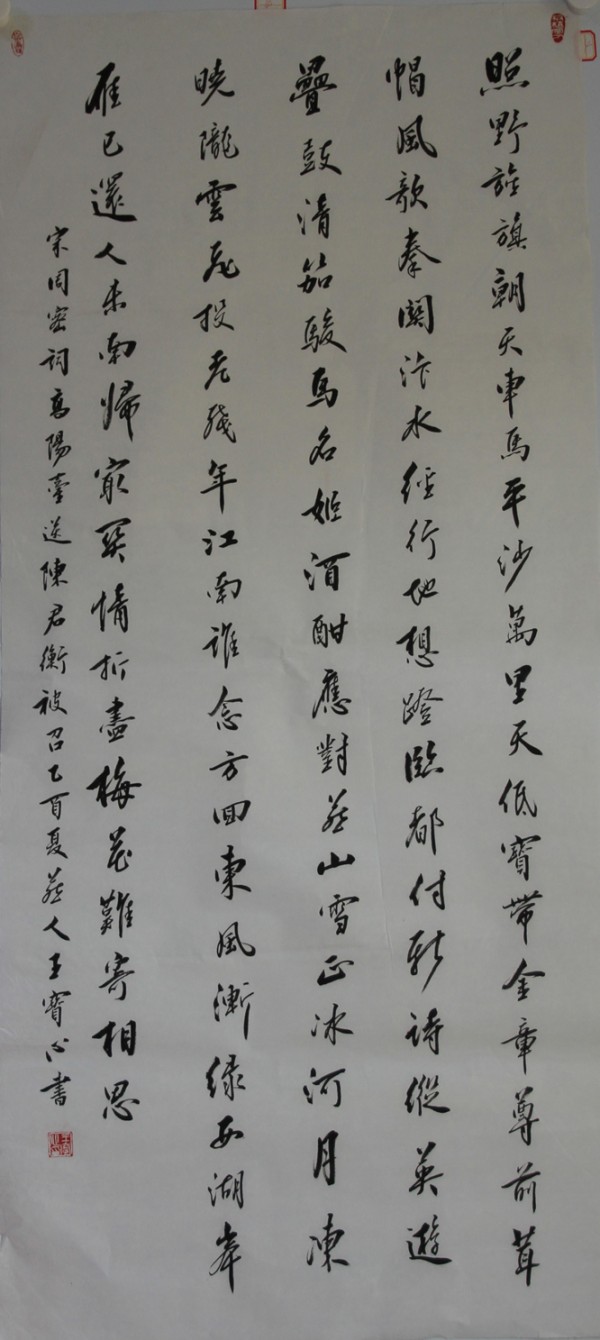 照野旌旗朝天車馬平沙萬里天低寶帶金章尊前茸
帽風欹秦關汴水經行地想登臨都付新詩縱英遊
疊鼓清笳駿馬名姬酒酣應對燕山雪正冰河月凍
曉隴雲飛投老殘年江南誰念方回東風漸綠西湖岸
雁已還人未南歸最関情折盡梅花難寄相思
宋周密詞高陽臺送陳君衡被召乙酉夏燕人王寶心書